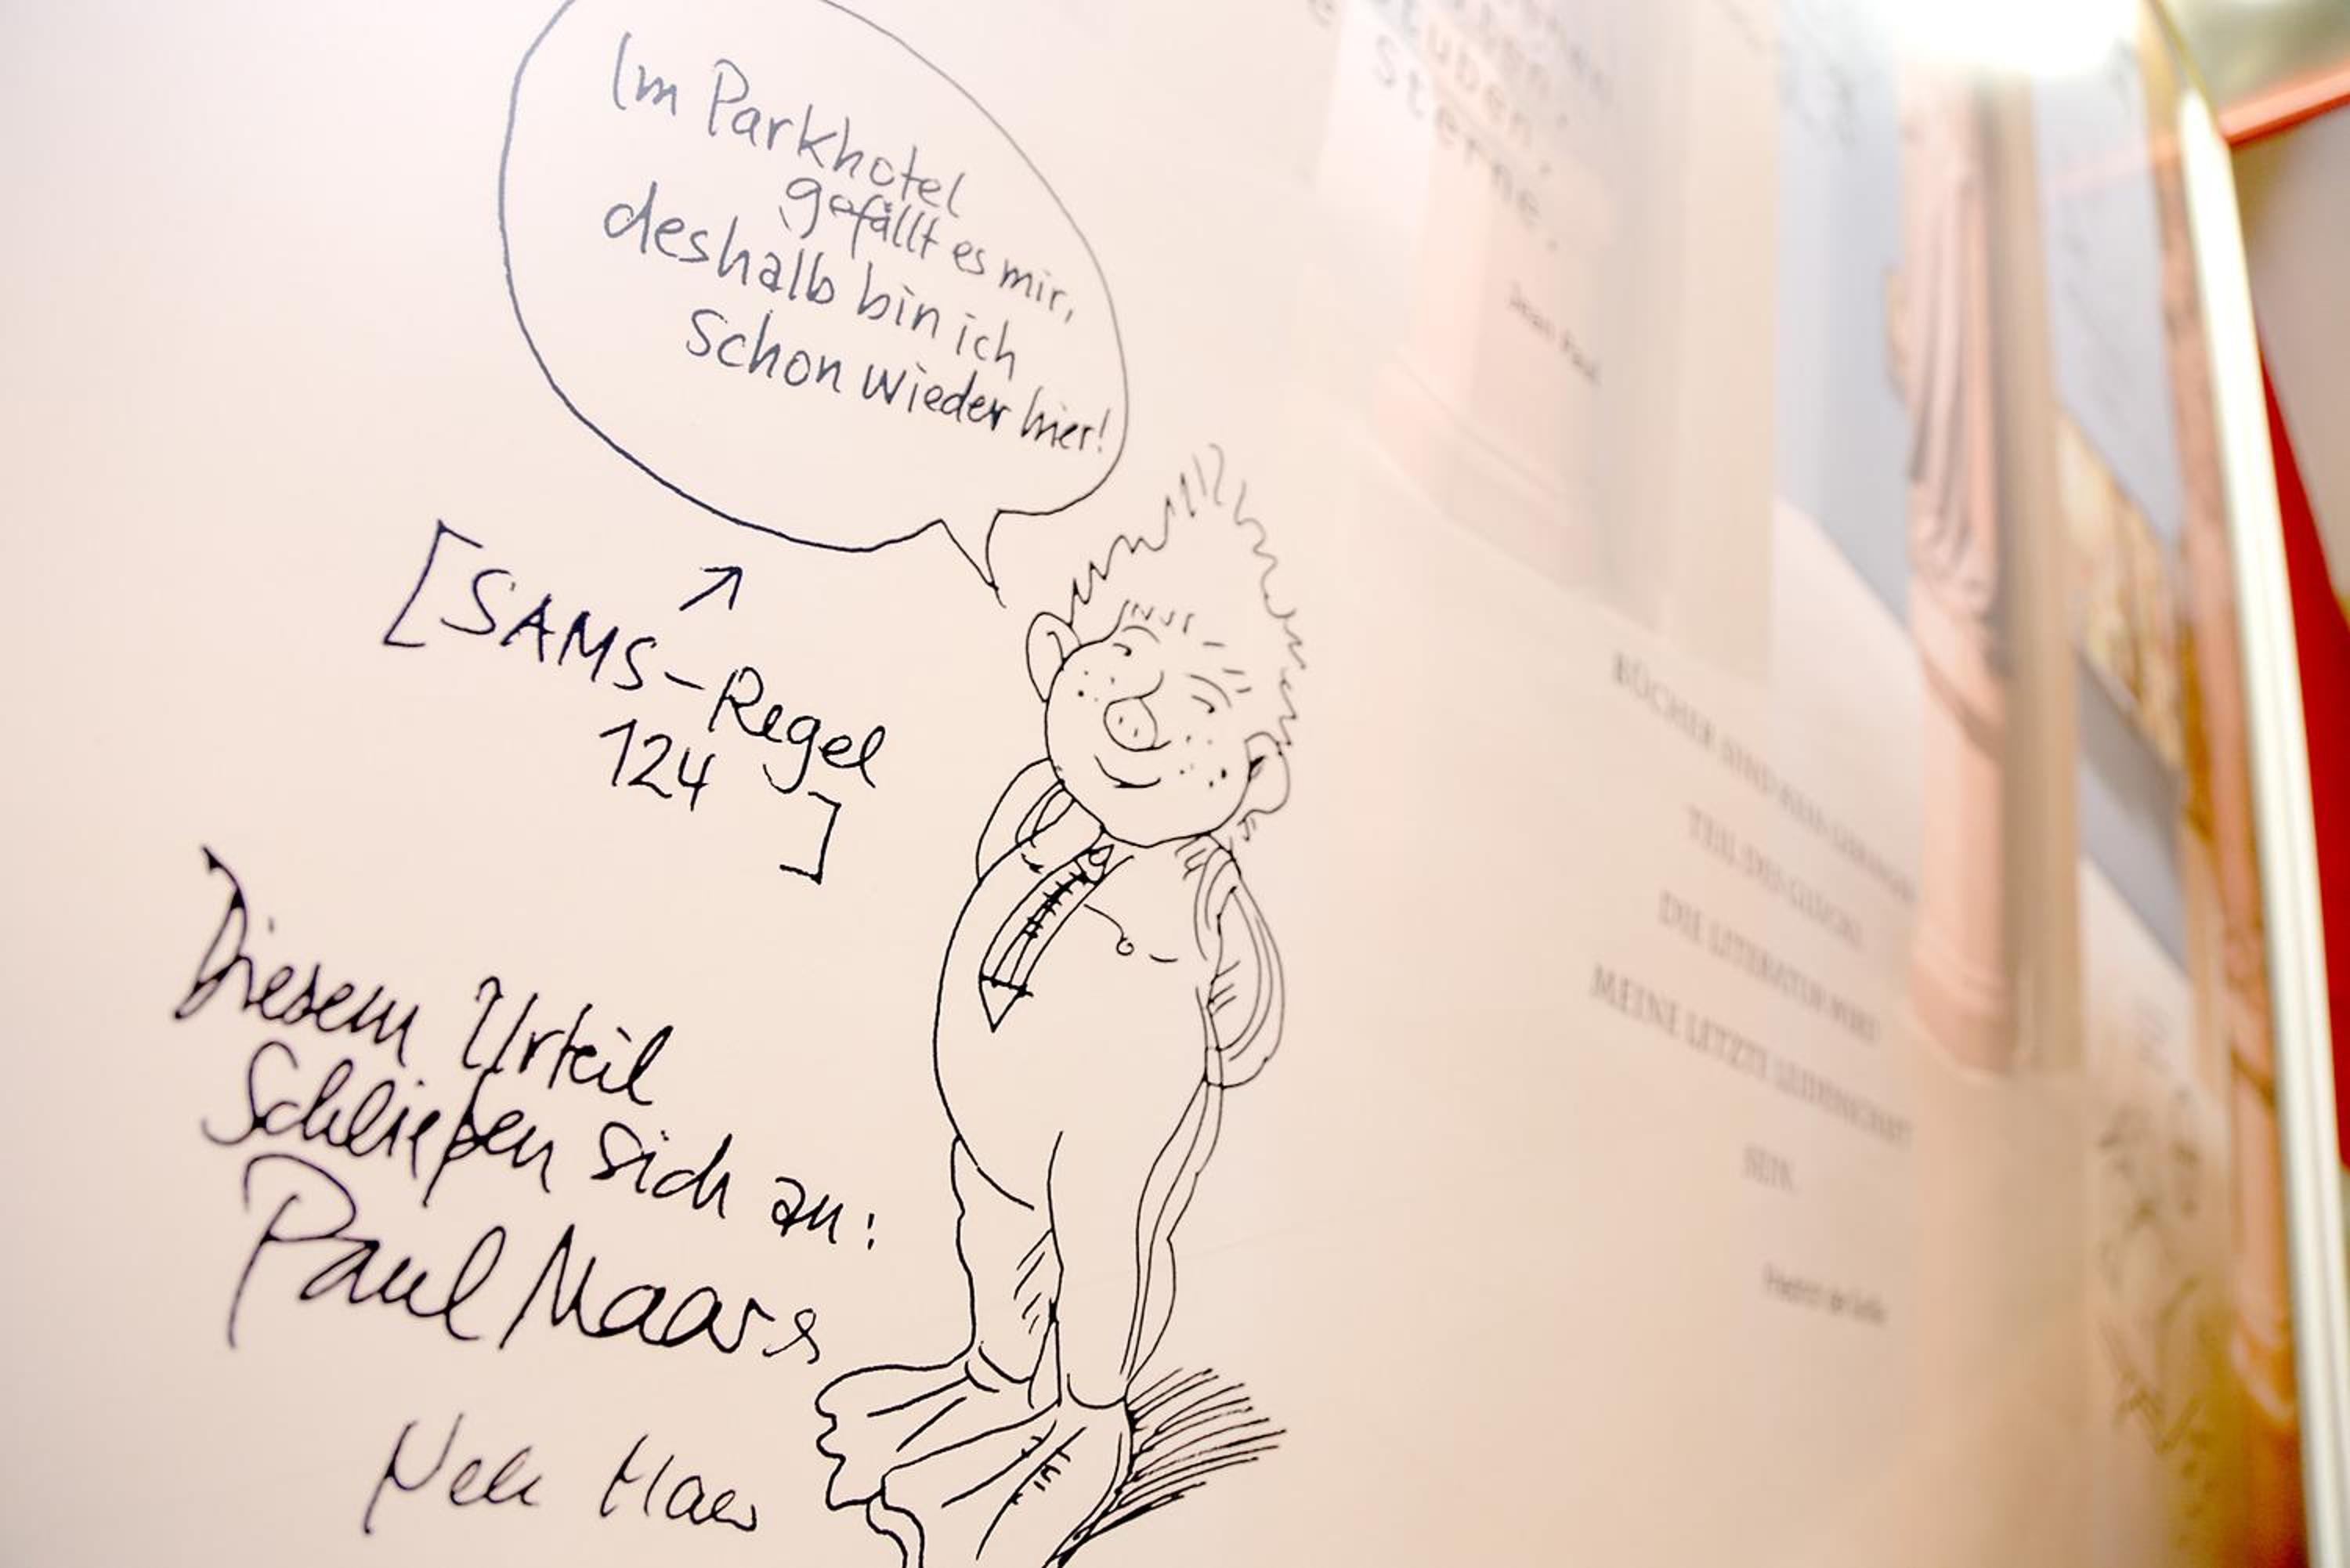 Im Parkhotel
gefällt es mir,
deshalb bin ich
schon wieder hier!
[SAMS-Regel
124
]
Diesem Urteil
Schließen sich an:
Paul Maar
Sterne.
Jean Paul
BÜCHER SIND KEIN GERINGER
TEIL DES GLÜCKS.
DIE LITERATUR WIRD
MEINE LETZTE LEIDENSCHAFT
SEIN.